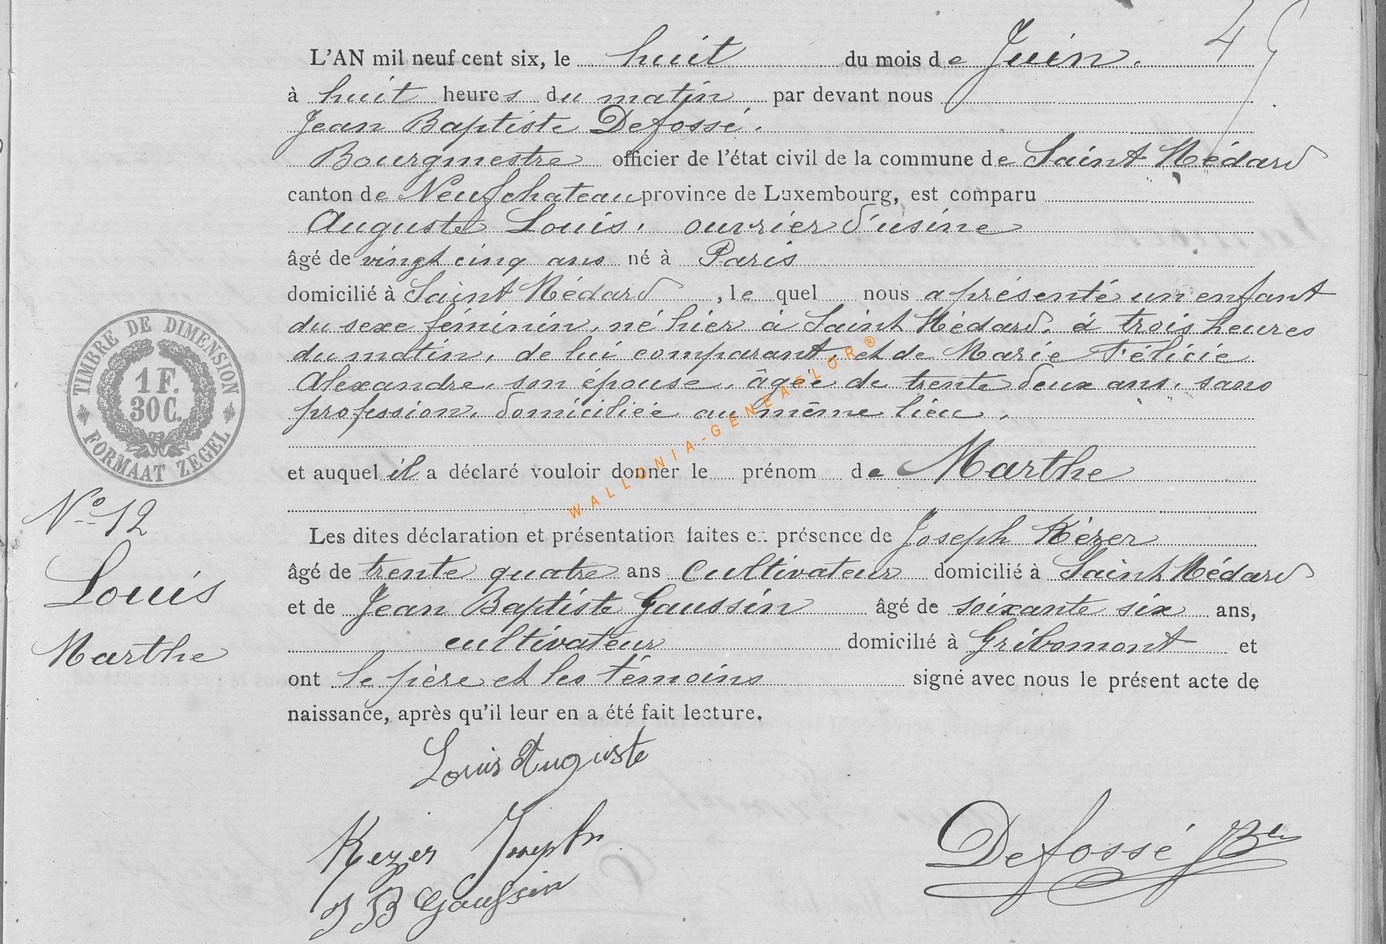 45
L'AN mil neuf cent six, le huit du mois de Juin.
à huit heures du matin par devant nous
Jean Baptiste Defossé.
Bourgmestre officier de l'état civil de la commune de Saint Médard
canton de Neufchateau province de Luxembourg, est comparu
Auguste Louis, ouvrier d'usine
âgé de vingt cinq ans né à Paris
domicilié à Saint Médard, le quel nous a présenté un enfant
du sexe féminin, né hier à Saint Médard, à trois heures
du matin, de lui comparant, et de Marie Félicie
Alexandre, son épouse, âgée de trente deux ans, sans
profession, domiciliée au même lieu
et auquel il a déclaré vouloir donner le prénom de Marthe
Les dites déclaration et présentation faites en présence de Joseph Kézer
âgé de trente quatre ans cultivateur domicilié à Saint Médard
et de Jean Baptiste Gaussin âgé de soixante six ans,
cultivateur domicilié à Gribomont et
ont le père et les témoins signé avec nous le présent acte de
naissance, après qu'il leur en a été fait lecture.
Louis Auguste
Kezer Joseph
J B Gaussin
Defossé JB
TIMBRE DE DIMENSION
1 F.
30 C.
FORMAAT ZEGEL
N° 12
Louis
Marthe
WALLONIA-GENEAFLOR®